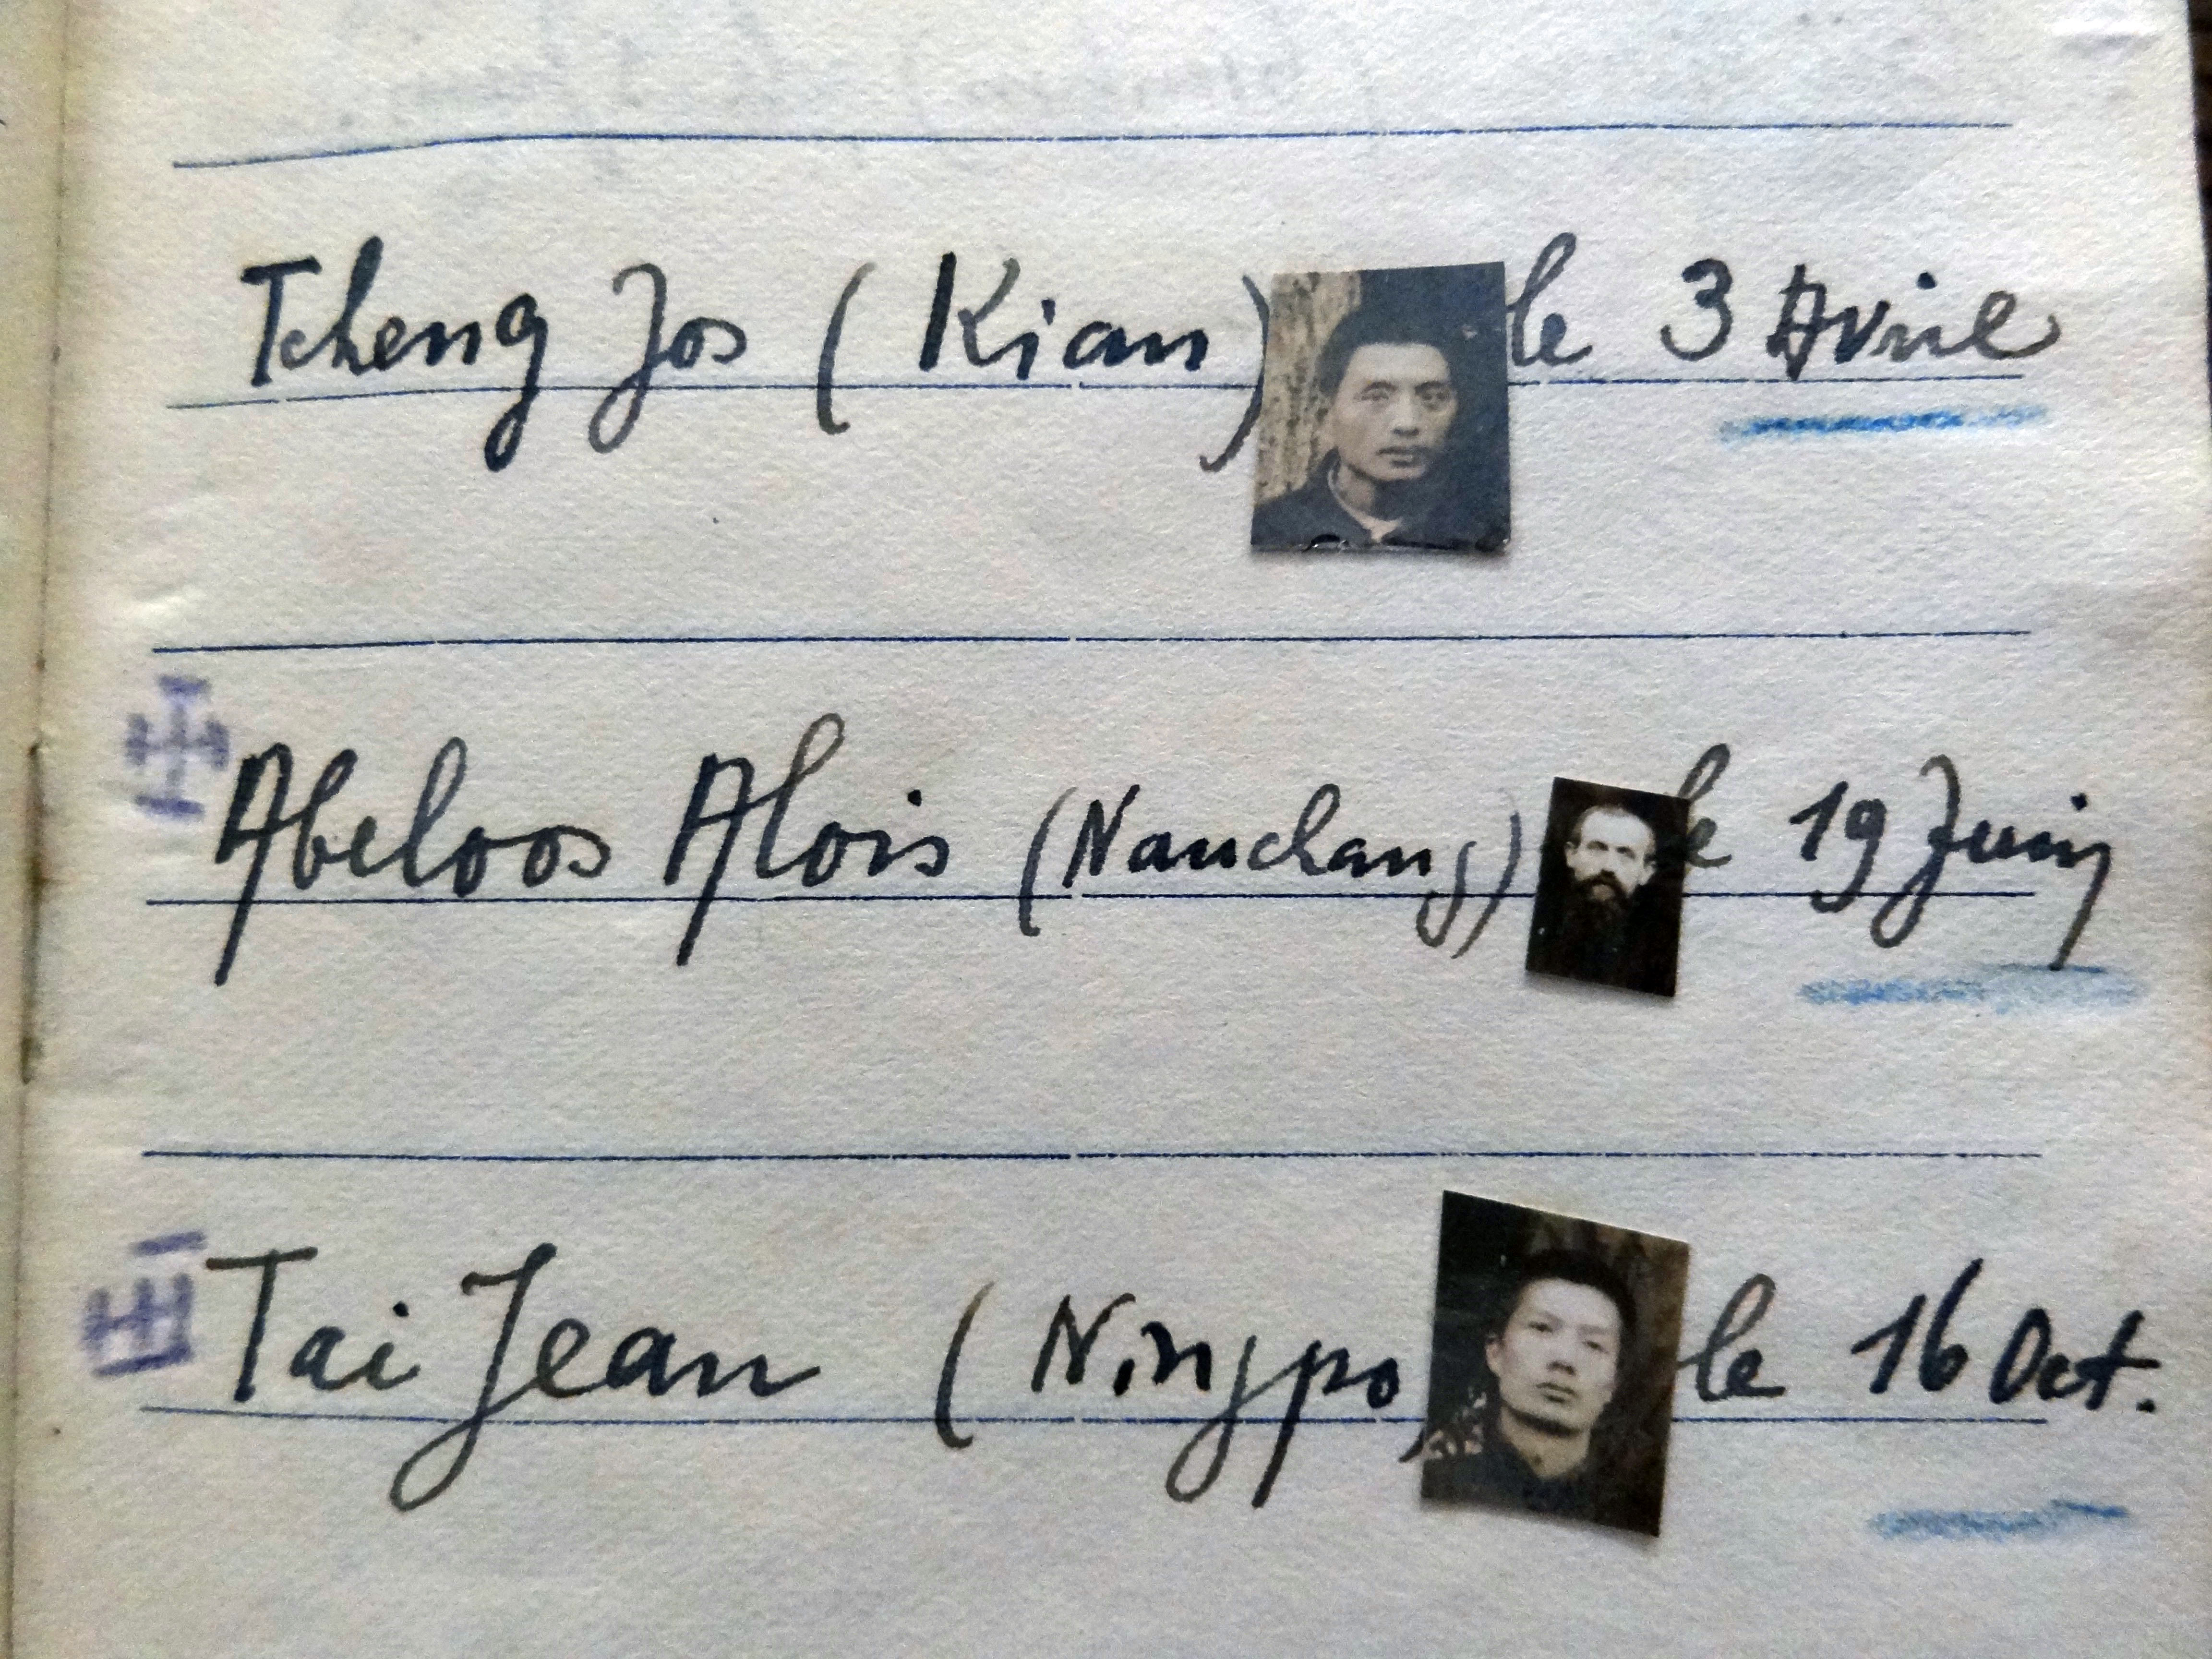 Tcheng Jos (Kian) le 3 Avril
Abeloos Alois (Nanchang) le 19 Juin
Tai Jean (Ningpo) le 16 Oct.